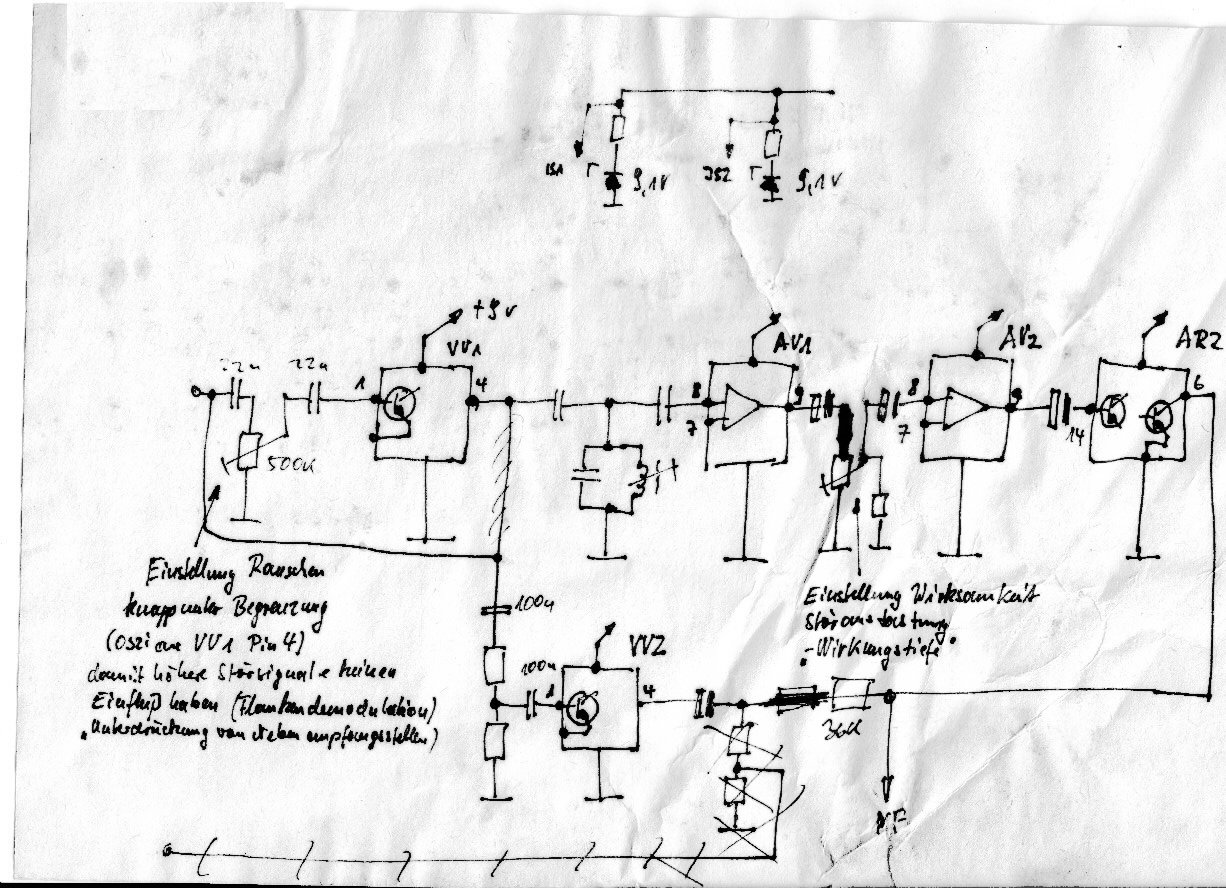 IS1
9,1V
IS2
9,1V
+9V
22n
22n
VV1
AV1
AV2
AR2
1
4
8
9
8
9
6
7
7
14
500k
Einstellung Rauschen
knapp unter Begrenzung
(Oszi an VV1 Pin 4)
damit höhere Störsignale keinen
Einfluß haben (Flankendemodulation)
"Unterdrückung von Nebenempfangsstellen)
Einstellung Wirksamkeit
Störaustastung
"-Wirkungstiefe"
100n
VV2
100n
1
4
30k
NF